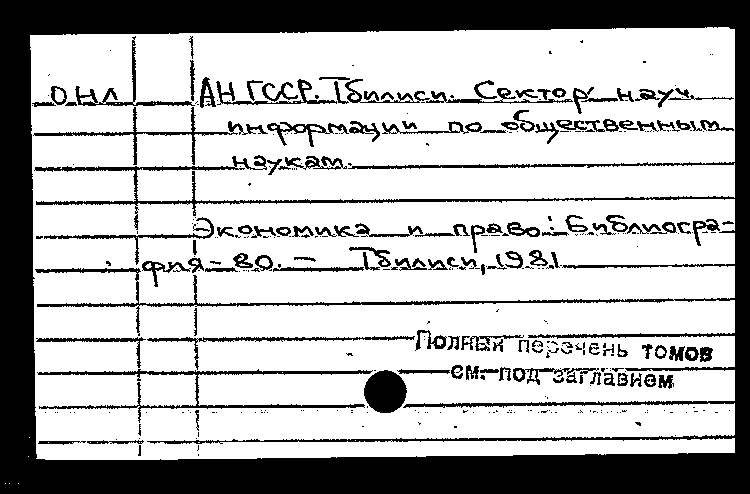 ОНЛ АН ГССР. Тбилиси. Сектор науч.
информации по общественным
наукам.
Экономика и право: Библиогра-
фия-80. — Тбилиси, 1981
Полный перечень томов
см. под заглавием